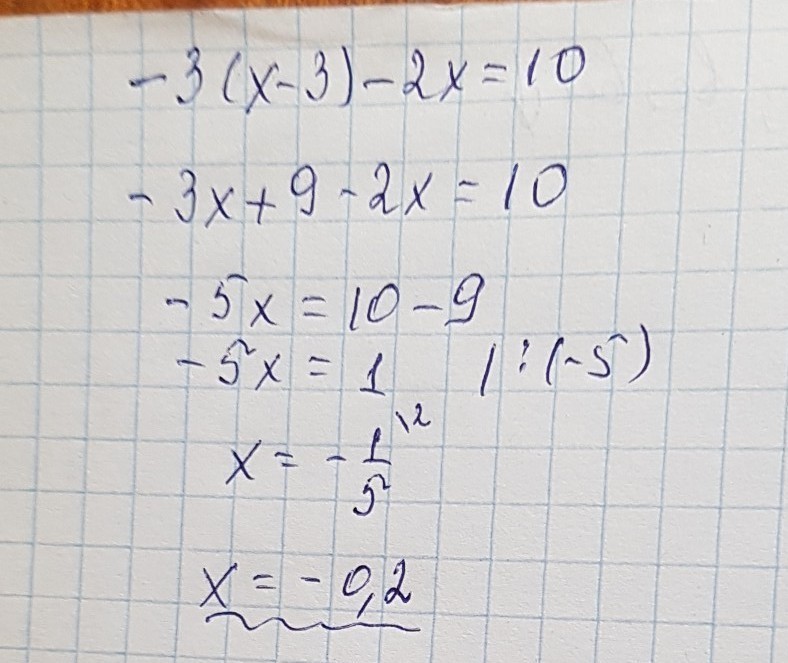 -3(x-3)-2x=10
-3x+9-2x=10
-5x=10-9
-5x=1 |:(-5)
x=-1/5 \2
x=-0,2